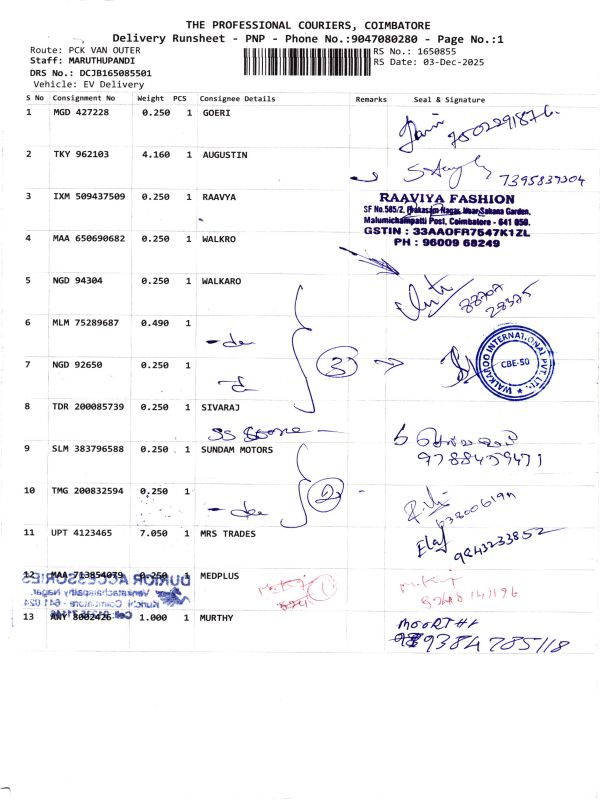 THE PROFESSIONAL COURIERS, COIMBATORE
Delivery Runsheet - PNP - Phone No.:9047080280 - Page No.:1
Route: PCK VAN OUTER
RS No.: 1650855
Staff: MARUTHUPANDI
RS Date: 03-Dec-2025
DRS No.: DCJB165085501
Vehicle: EV Delivery
S No Consignment No Weight PCS Consignee Details Remarks Seal & Signature
1 MGD 427228 0.250 1 GOERI
2 TKY 962103 4.160 1 AUGUSTIN
7395837304
3 IXM 509437509 0.250 1 RAAVYA
RAAVIYA FASHION
SF No.585/2, Prakasam Nagar, Near Sahana Garden,
Malumichampatti Post, Coimbatore - 641 050.
GSTIN : 33AAOFR7547K1ZL
PH : 96009 68249
4 MAA 650690682 0.250 1 WALKRO
5 NGD 94304 0.250 1 WALKARO
88707
28375
6 MLM 75289687 0.490 1
3
WALKAROO INTERNATIONAL PVT. LTD.
CBE-50
7 NGD 92650 0.250 1
8 TDR 200085739 0.250 1 SIVARAJ
9788459471
9 SLM 383796588 0.250 1 SUNDAM MOTORS
2
10 TMG 200832594 0.250 1
11 UPT 4123465 7.050 1 MRS TRADES
9843233852
12 MAA 713854079 0.250 1 MEDPLUS
DURIOR ACCESSORIES
Venkatachalapathy Nagar,
Kurichi, Coimbatore - 641 024
13 ANY 8002426 1.000 1 MURTHY
MOORTHY
9384785118